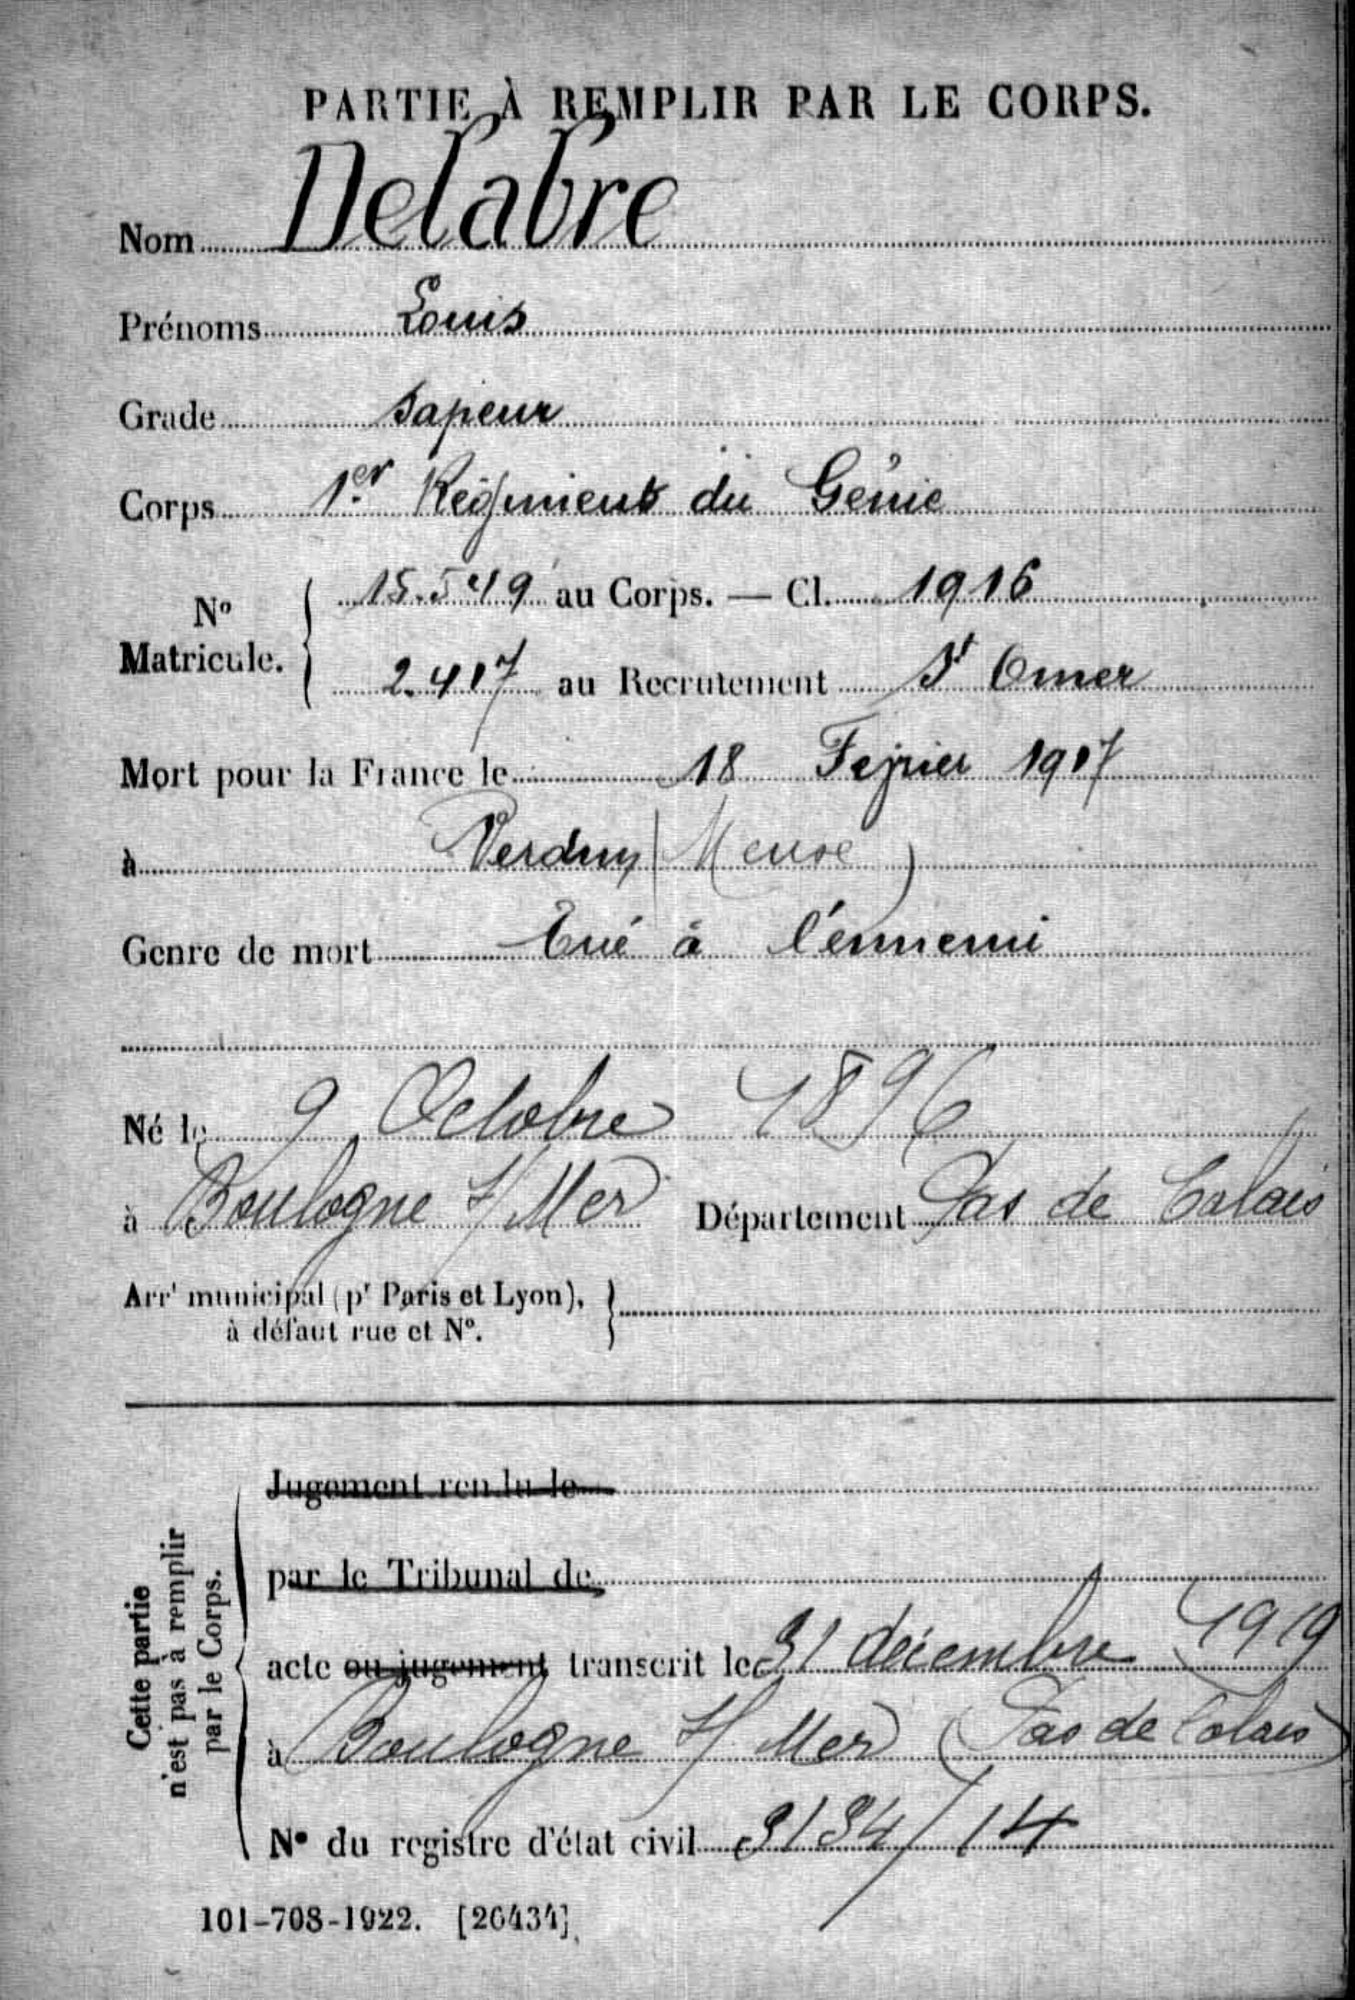 PARTIE À REMPLIR PAR LE CORPS.
Nom Delabre
Prénoms Louis
Grade Sapeur
Corps 1er Régiment du Génie
No Matricule. 15.549 au Corps. — Cl. 1916
2.417 au Recrutement St Omer
Mort pour la France le 18 Fevrier 1917
à Verdun (Meuse)
Genre de mort Tué à l'ennemi
Né le 9 Octobre 1896
à Boulogne s/ Mer Département Pas de Calais
Arrt municipal (pr Paris et Lyon),
à défaut rue et No.
Cette partie
n'est pas à remplir
par le Corps.
Jugement rendu le
par le Tribunal de
acte ou jugement transcrit le 31 décembre 1919
à Boulogne s/ Mer (Pas de Calais)
No du registre d'état civil 3134/14
101-708-1922. [26434]